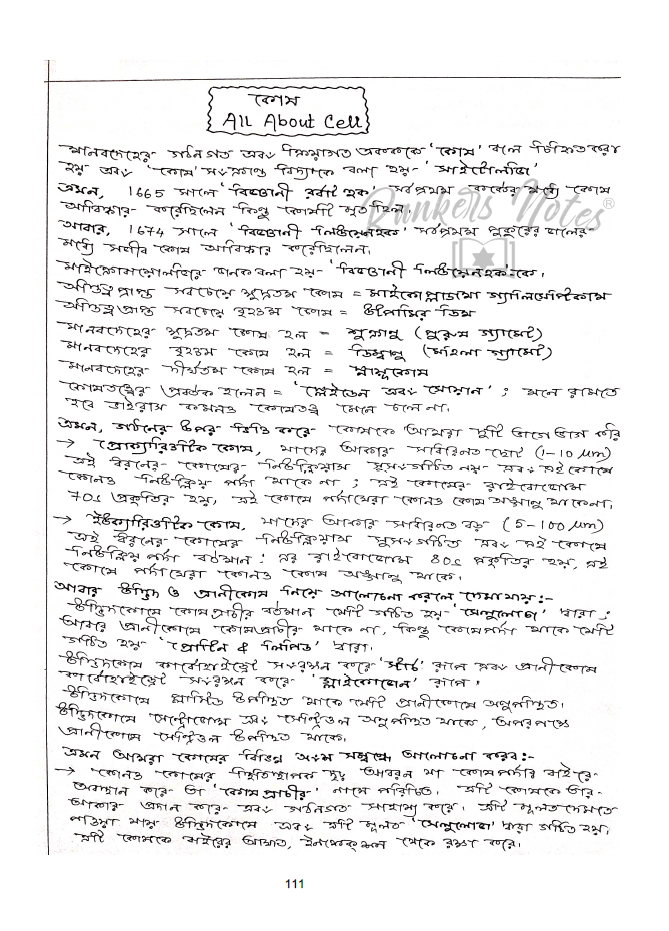 কোষ
All About Cell
Rankers Notes®
মানবদেহের গঠনগত এবং ক্রিয়াগত একককে 'কোষ' বলে চিহ্নিত করা
হয় এবং 'কোষ' সংক্রান্ত বিদ্যাকে বলা হয় 'সাইটোলজি'
এখন, 1665 সালে 'বিজ্ঞানী রবার্ট হুক' সর্বপ্রথম কর্কের মধ্যে কোষ
আবিষ্কার করেছিলেন কিন্তু কোষটি মৃত ছিল।
আবার, 1674 সালে 'বিজ্ঞানী লিউয়েনহুক' সর্বপ্রথম পুকুরের জলের
মধ্যে সজীব কোষ আবিষ্কার করেছিলেন।
মাইক্রোবায়োলজির জনক বলা হয় 'বিজ্ঞানী লিউয়েনহুক'কে।
অস্তিত্ব প্রাপ্ত সবচেয়ে ক্ষুদ্রতম কোষ = মাইকোপ্লাজমা গ্যালিসেপ্টিকাম
অস্তিত্ব প্রাপ্ত সবচেয়ে বৃহত্তম কোষ = উটপাখির ডিম
মানবদেহের ক্ষুদ্রতম কোষ হল = শুক্রাণু (পুরুষ গ্যামেট)
মানবদেহের বৃহত্তম কোষ হল = ডিম্বাণু (মহিলা গ্যামেট)
মানবদেহের দীর্ঘতম কোষ হল = স্নায়ুকোষ
কোষতত্ত্বের প্রবক্তক হলেন = 'স্লেইডেন এবং সোয়ান'; মনে রাখতে
হবে ভাইরাস কখনও কোষতত্ত্ব মেনে চলে না।
এখন, গঠনের উপর ভিত্তি করে কোষকে আমরা দুটি ভাগে ভাগ করি
→ প্রোক্যারিওটিক কোষ, যাদের আকার সাধারণত ছোট (1-10 μm)
এই ধরনের কোষের নিউক্লিয়াস সুসংগঠিত নয় এবং এই কোষে
কোনও নিউক্লিয় পর্দা থাকে না; এই কোষের রাইবোজোম
70s প্রকৃতির হয়, এই কোষে পর্দাঘেরা কোনও কোষ অঙ্গাণু থাকেনা।
→ ইউক্যারিওটিক কোষ, যাদের আকার সাধারণত বড় (5-100 μm)
এই ধরনের কোষের নিউক্লিয়াস সুসংগঠিত এবং এই কোষে
নিউক্লিয় পর্দা বর্তমান। এর রাইবোজোম 80s প্রকৃতির হয়, এই
কোষে পর্দাঘেরা কোনও কোষ অঙ্গাণু থাকে।
আবার উদ্ভিদ ও প্রানীকোষ নিয়ে আলোচনা করলে দেখাযায়:-
উদ্ভিদকোষে কোষপ্রাচীর বর্তমান যেটি গঠিত হয় 'সেলুলোজ' দ্বারা;
আবার প্রানীকোষে কোষপ্রাচীর থাকে না, কিন্তু কোষপর্দা থাকে যেটি
গঠিত হয় 'প্রোটিন & লিপিড' দ্বারা।
উদ্ভিদকোষ কার্বোহাইড্রেট সংরক্ষন করে 'স্টার্চ' রূপে এবং প্রানীকোষ
কার্বোহাইড্রেট সংরক্ষন করে 'গ্লাইকোজেন' রূপে।
উদ্ভিদকোষে প্লাস্টিড উপস্থিত থাকে যেটি প্রানীকোষে অনুপস্থিত।
উদ্ভিদকোষে সেন্ট্রোজোম এবং সেন্ট্রিওল অনুপস্থিত থাকে, অপরপক্ষে
প্রানীকোষে সেন্ট্রিওল উপস্থিত থাকে।
এখন আমরা কোষের বিভিন্ন অংশ সম্বন্ধে আলোচনা করব:-
→ কোনও কোষের স্থিতিস্থাপক দৃঢ় আবরন যা কোষপর্দার বাইরে
অবস্থান করে তা 'কোষপ্রাচীর' নামে পরিচিত। এটি কোষকে তার
আকার প্রদান করে এবং গঠনগত সাহায্য করে। এটি মূলত দেখতে
পাওয়া যায় উদ্ভিদকোষে এবং এটি মূলত 'সেলুলোজ' দ্বারা গঠিত হয়।
এটি কোষকে বাইরের আঘাত, ইনফেকশন থেকে রক্ষা করে।
111